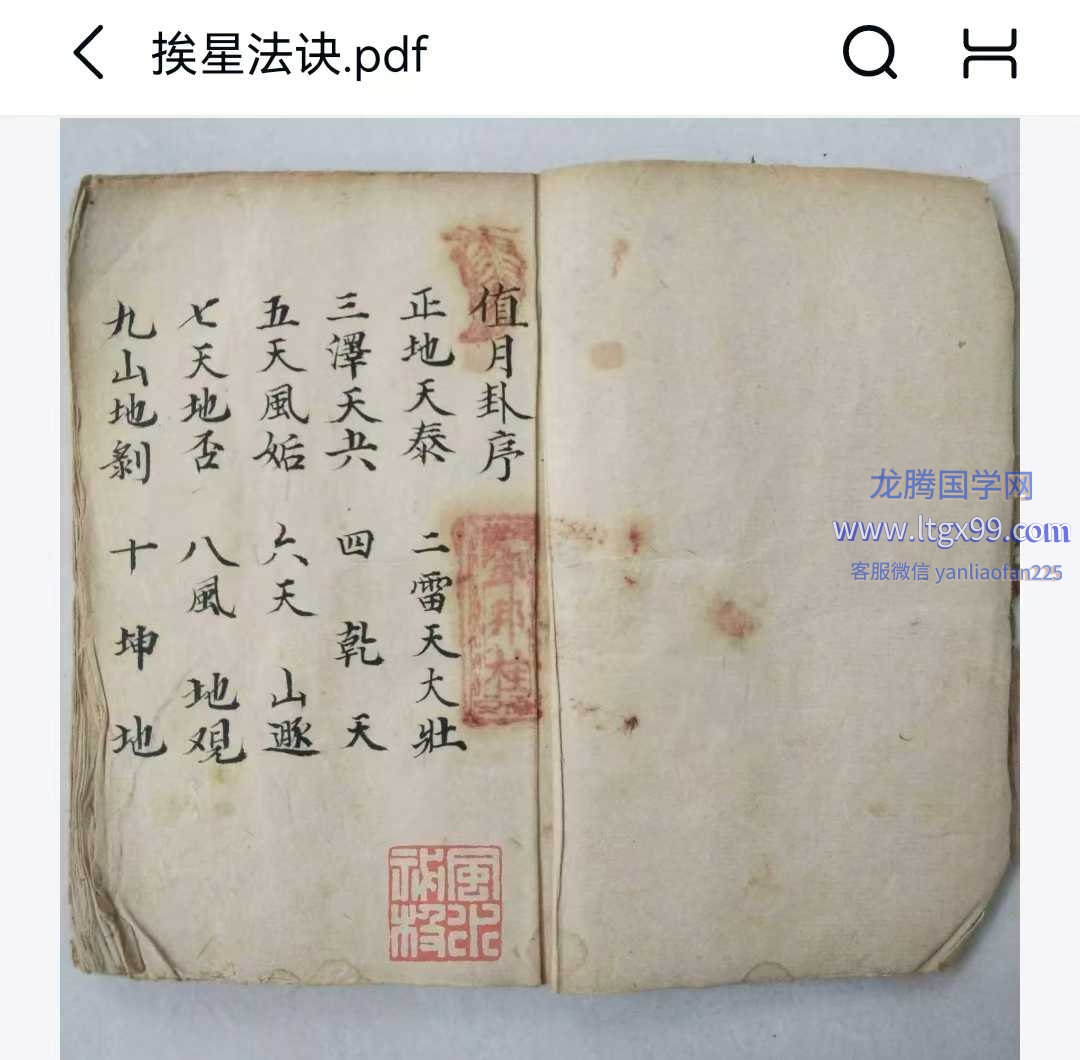 挨星法诀.pdf
值月卦序
正地天泰 二雷天大壯
三澤天夬 四乾天
五天風姤 六天山遯
七天地否 八風地观
九山地剝 十坤地
龙腾国学网
www.ltgx99.com
客服微信 yanliaofan225